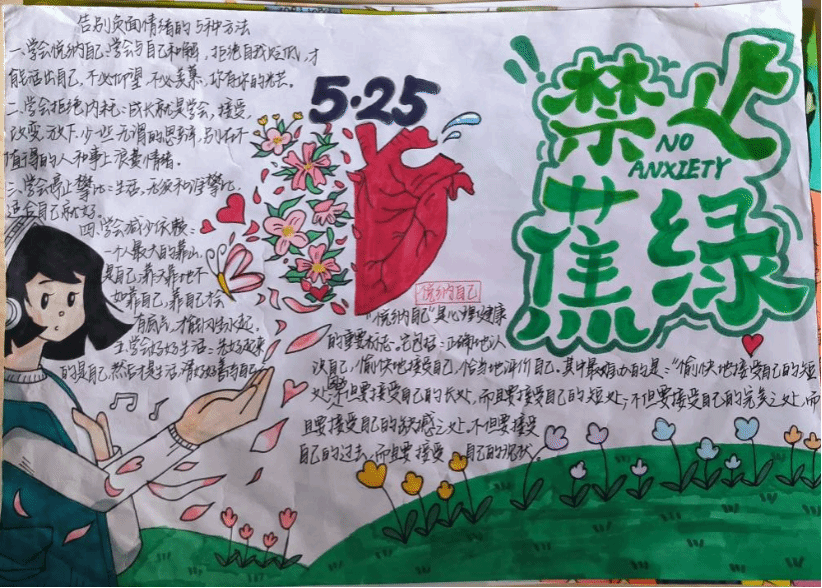 告别负面情绪的5种方法
一、学会悦纳自己:学会与自己和解,拒绝自我贬低,才
能活出自己,不必仰望,不必羡慕,你有你的光芒。
二、学会拒绝内耗:成长就是学会,接受,
改变,放下,少一些无谓的思虑,别在不
值得的人和事上浪费情绪。
三、学会停止攀比:生活,无须和谁攀比,
适合自己就好。
四、学会减少依赖:
一个人最大的靠山
是自己,靠天靠地不
如靠自己,靠自己才会
有底气,才能闪闪发光。
五、学会好好生活:先好起来
的是自己,然后才是生活,请好好善待自己
5·25
禁止
NO
ANXIETY
蕉绿
悦纳自己
"悦纳自己"是心理健康
的重要标志。它包括:正确地认
识自己,愉快地接受自己,恰当地评价自己。其中最难办的是:"愉快地接受自己的短
处:不但要接受自己的长处,而且要接受自己的短处;不但要接受自己的完美之处,而
且要接受自己的缺憾之处,不但要接受
自己的过去,而且要接受自己的现状。